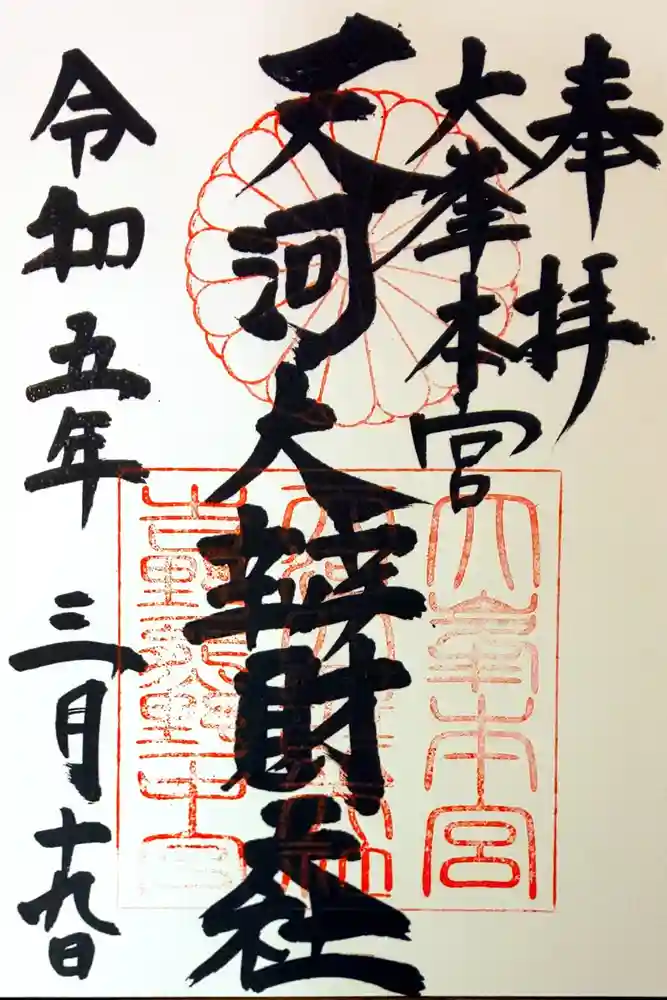 奉拝
大峯本宮
天河大辨財天社
令和五年三月十九日
大峯本宮